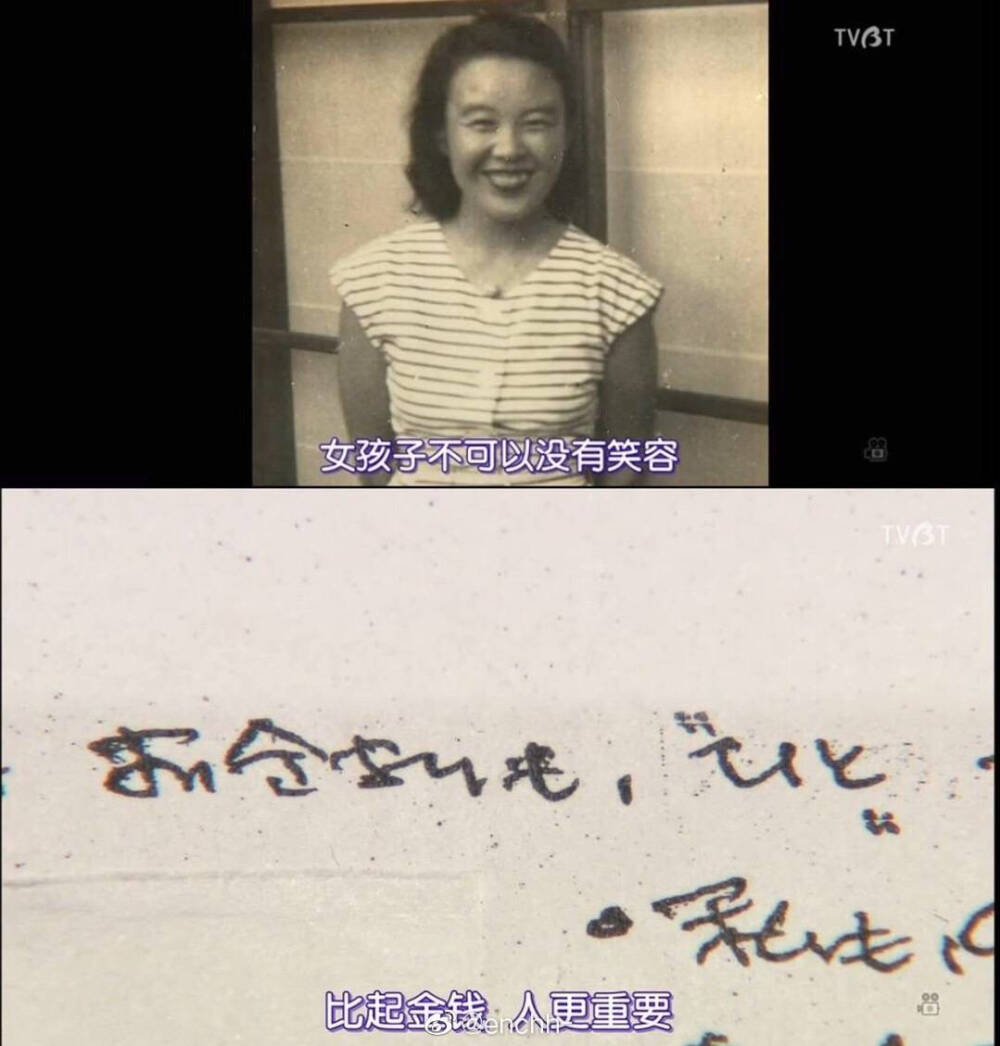 TVBT
女孩子不可以没有笑容
TVBT
お金よりも，〝ひと〟
・私は，
比起金钱 人更重要
@enchh